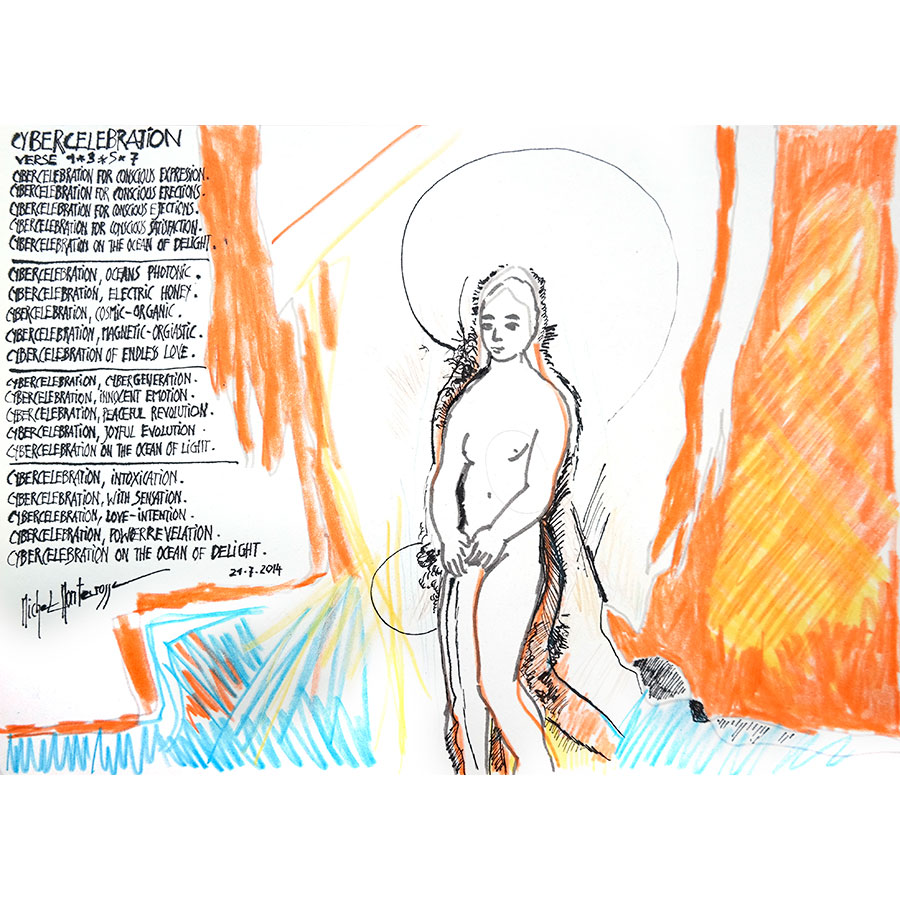 CYBERCELEBRATION
VERSE 1*3*5*7
CYBERCELEBRATION FOR CONSCIOUS EXPRESSION.
CYBERCELEBRATION FOR CONSCIOUS ERECTIONS.
CYBERCELEBRATION FOR CONSCIOUS EJECTIONS.
CYBERCELEBRATION FOR CONSCIOUS SATISFACTION.
CYBERCELEBRATION ON THE OCEAN OF DELIGHT.
CYBERCELEBRATION, OCEANS PHOTONIC.
CYBERCELEBRATION, ELECTRIC HONEY.
CYBERCELEBRATION, COSMIC-ORGANIC.
CYBERCELEBRATION, MAGNETIC-ORGIASTIC.
CYBERCELEBRATION OF ENDLESS LOVE.
CYBERCELEBRATION, CYBERGENERATION.
CYBERCELEBRATION, INNOCENT EMOTION.
CYBERCELEBRATION, PEACEFUL REVOLUTION.
CYBERCELEBRATION, JOYFUL EVOLUTION.
CYBERCELEBRATION ON THE OCEAN OF LIGHT.
CYBERCELEBRATION, INTOXICATION.
CYBERCELEBRATION, WITH SENSATION.
CYBERCELEBRATION, LOVE-INTENTION.
CYBERCELEBRATION, POWERREVELATION.
CYBERCELEBRATION ON THE OCEAN OF DELIGHT.
21.7.2014
Michel Montecrossa